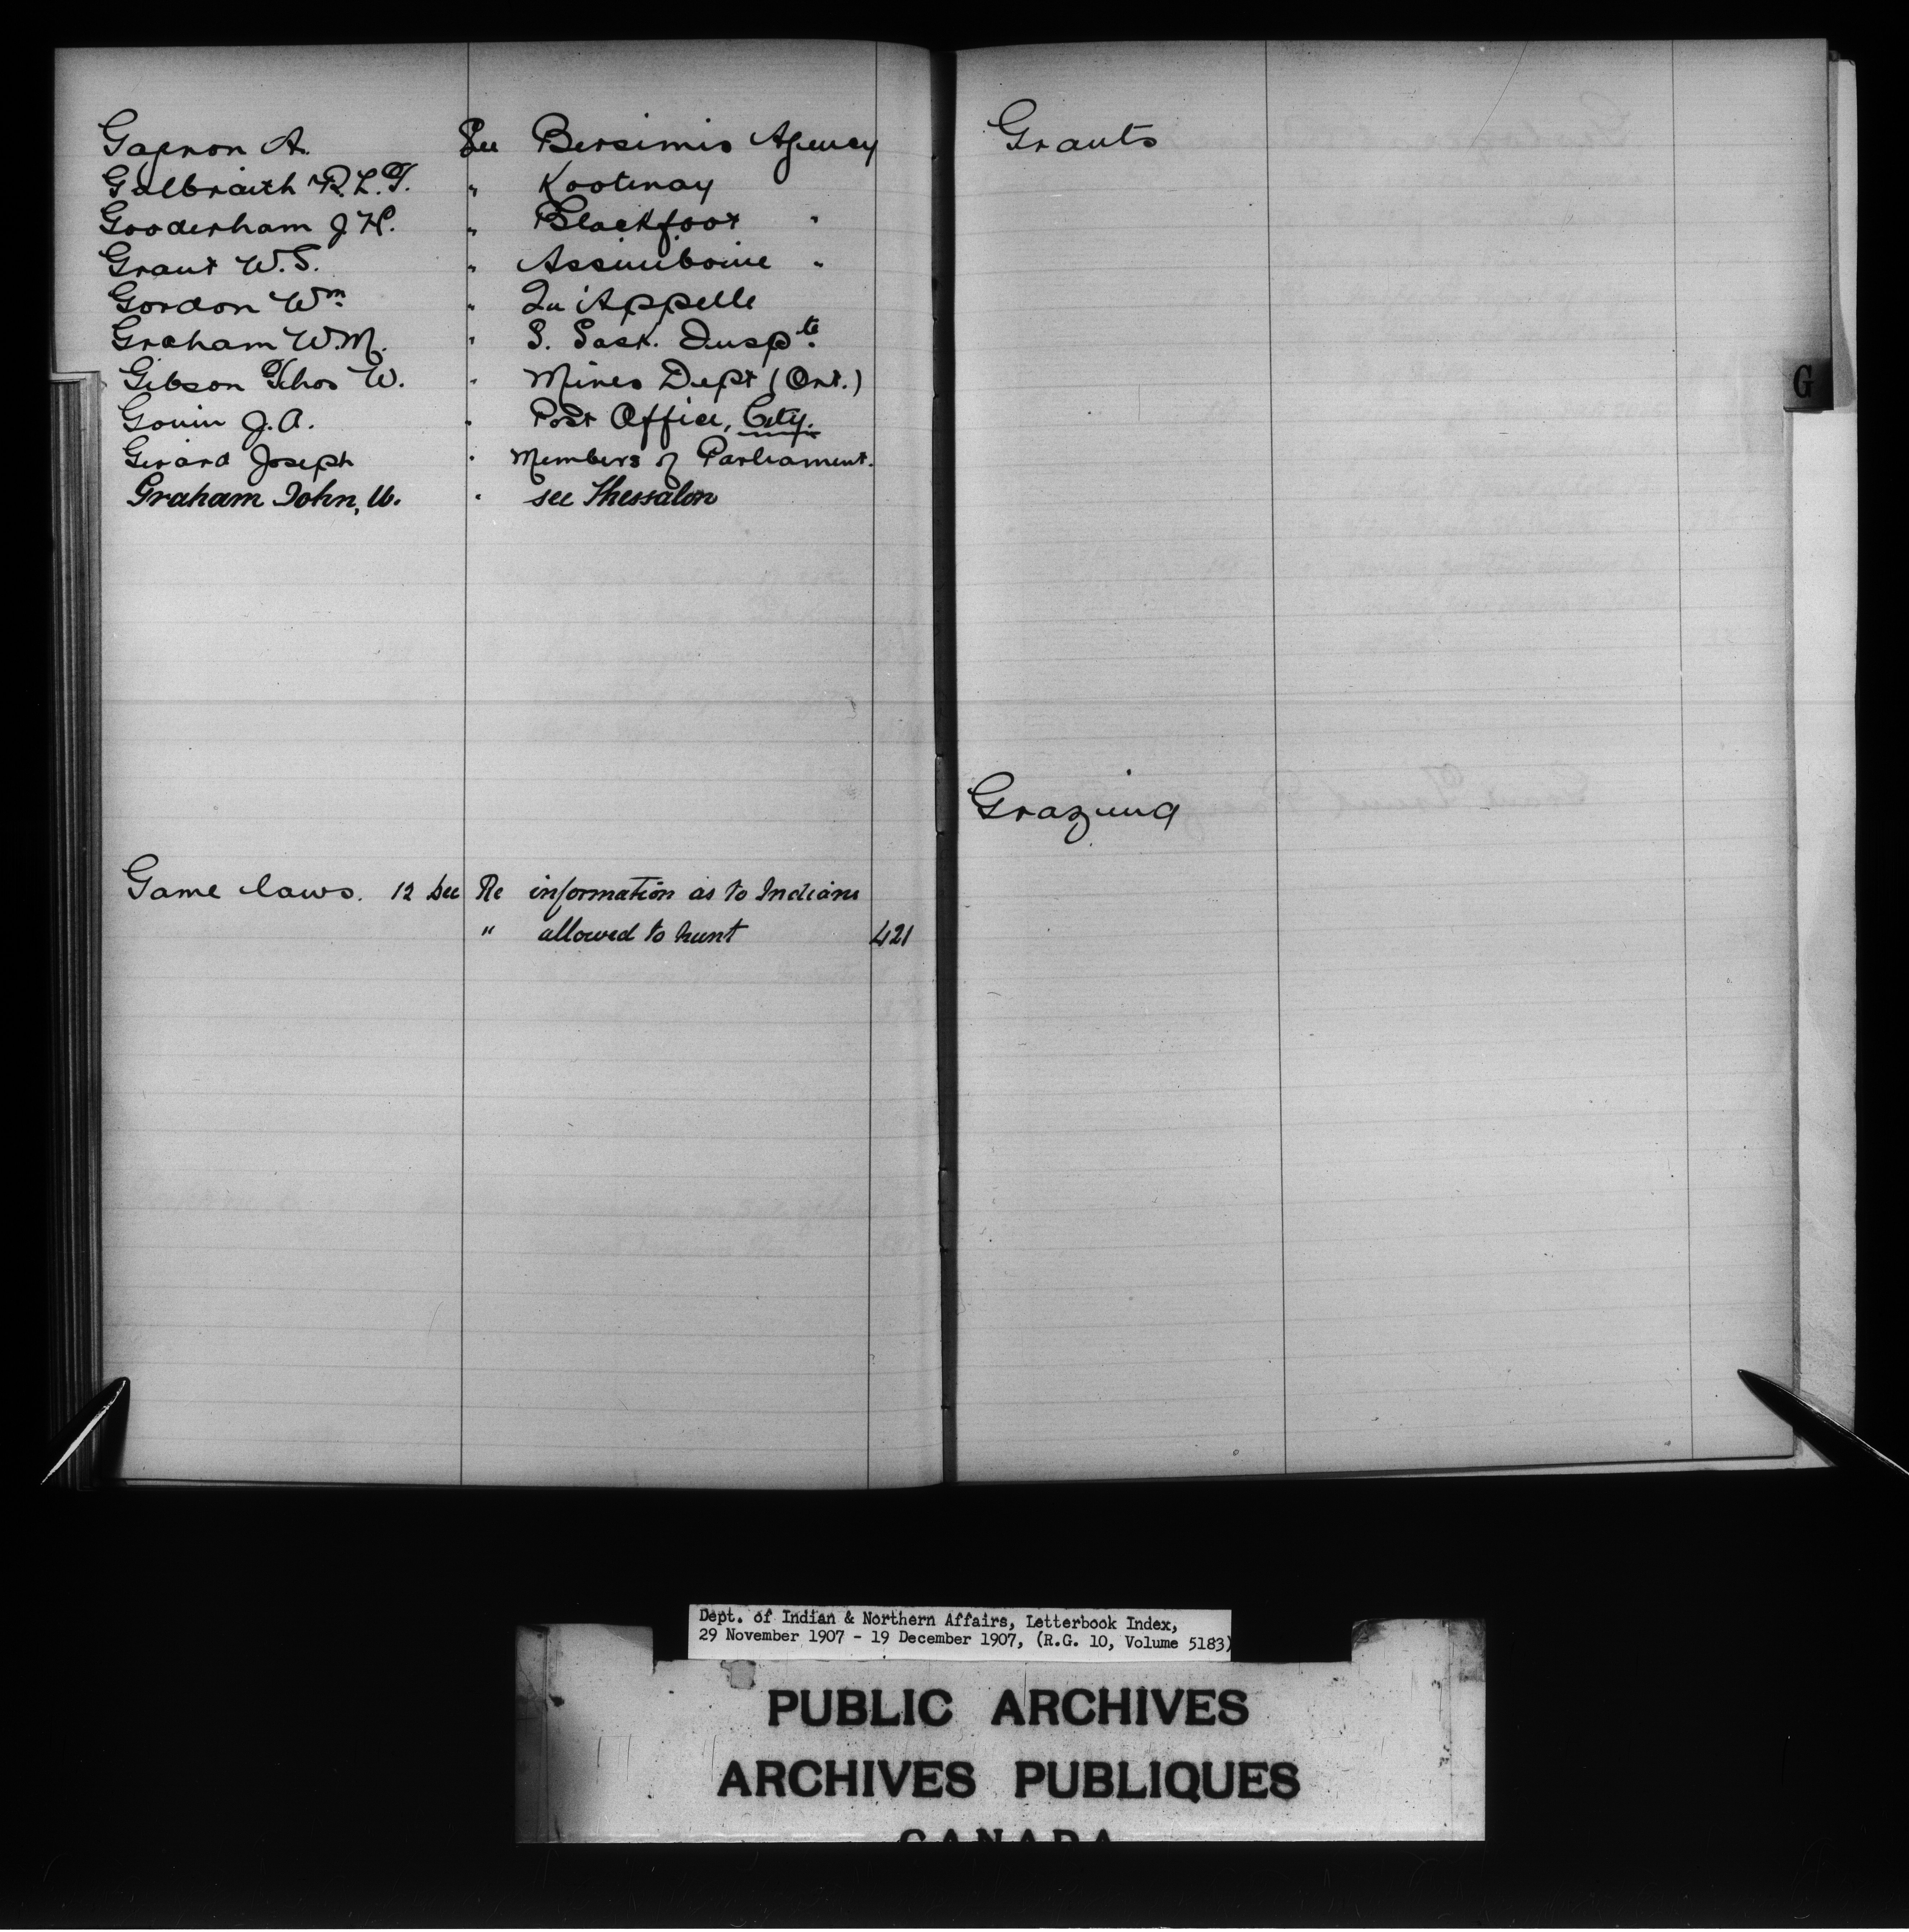 Gagnon A. See Bersimis Agency
Galbraith R.L.T. " Kootenay
Gooderham J.H. " Blackfoot "
Grant W.S. " Assiniboine "
Gordon Wm. " Qu'Appelle
Graham W.M. " S. Sask. Inspte.
Gibson Thos W. " Mines Dept (Ont.)
Gouin J.A. " Post Office, City.
Girard Joseph " Members of Parliament.
Graham John, " see Thessalon
Game laws. 12 Dec Re information as to Indians
" allowed to hunt 421
Grants
Grazing
G
Dept. of Indian & Northern Affairs, Letterbook Index,
29 November 1907 - 19 December 1907, (R.G. 10, Volume 5183)
PUBLIC ARCHIVES
ARCHIVES PUBLIQUES
CANADA